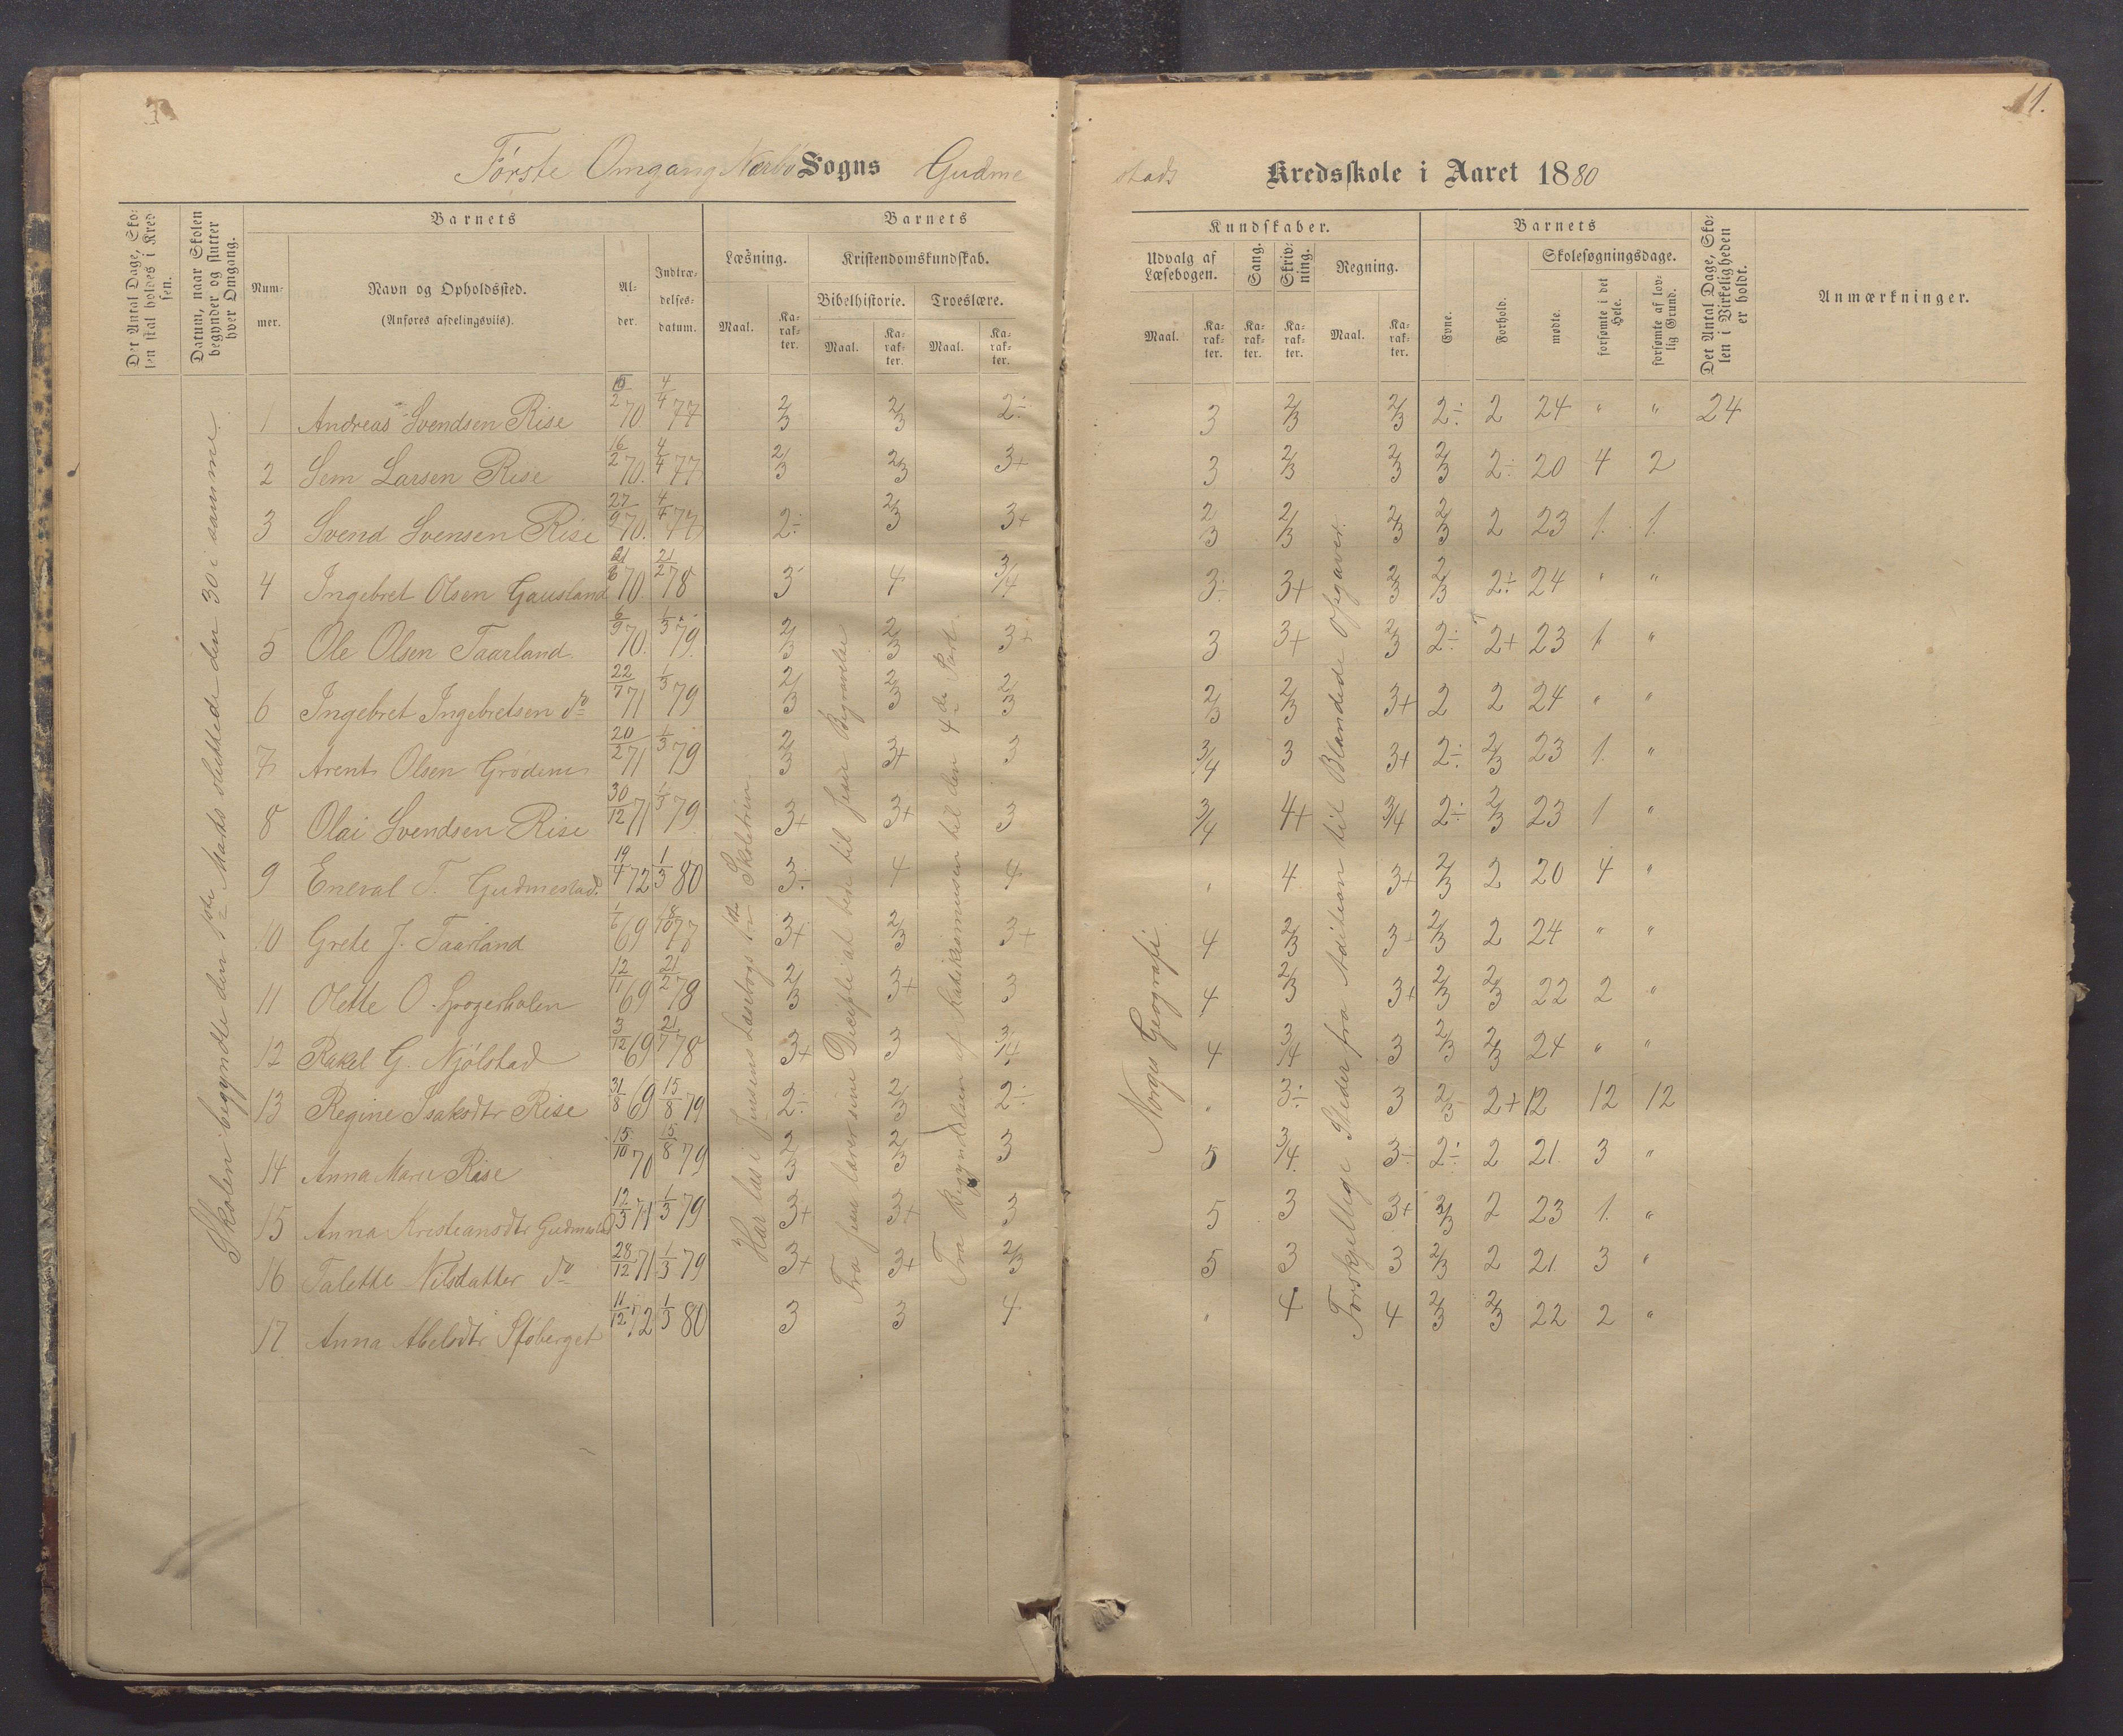 11.
Første Omgang Nærbø Sogns Gudme
stads Kredsskole i Aaret 1880
Det Antal Dage, Sko-
len skal holdes i Kred
sen.
Datum, naar Skolen
begynder og slutter
hver Omgang.
Barnets
Num-
mer.
Navn og Opholdssted.
(Anføres afdelingsviis).
Al-
der.
Indtræ-
delses-
datum.
Barnets
Læsning.
Maal.
Ka-
rak-
ter.
Kristendomskundskab.
Bibelhistorie.
Maal.
Ka-
rak-
ter.
Troeslære.
Maal.
Ka-
rak-
ter.
Kundskaber.
Udvalg af
Læsebogen.
Maal.
Ka-
rak-
ter.
Sang.
Ka-
rak-
ter.
Skriv-
ning.
Ka-
rak-
ter.
Regning.
Maal.
Ka-
rak-
ter.
Barnets
Evne.
Forhold.
Skolesøgningsdage.
mødte.
forsømte i det
Hele.
forsømte af lov-
lig Grund.
Det Antal Dage, Sko-
len i Virkeligheden
er holdt.
Anmærkninger.
Skolen begyndte den 1ste Marts sluttede den 30 i samme.
Har læst i Jensens Læsebogs 1ste Skoletrin
Fra Jesu lærer sine Disciple at bede til Jesu Begravelse
Fra Begyndelsen af Katekismusen til den 4de Part
Norges Geografi
Forskjellige Steder fra Adition til Blandede Opgaver.
1 Andreas Svendsen Rise 15/2 70 4/4 77 2/3 2/3 2÷ 3 2/3 2/3 2÷ 2 24 " " 24
2 Sem Larsen Rise 16/2 70. 4/4 77 2/3 2/3 3+ 3 2/3 2/3 2/3 2÷ 20 4 2
3 Svend Svensen Rise 27/9 70. 4/4 77 2÷ 2/3 3+ 2/3 2/3 2/3 2/3 2 23 1. 1.
4 Ingebret Olsen Gausland 21/6 70. 21/2 78 3 4 3/4 3÷ 3+ 2/3 2/3 2÷ 24 " "
5 Ole Olsen Taarland 6/9 70. 1/3 79. 2/3 2/3 3+ 3 3+ 2/3 2÷ 2+ 23 1 "
6 Ingebret Ingebretsen do 22/7 71 1/3 79 2/3 2/3 2/3 2/3 2/3 3+ 2 2 24 " "
7 Arent Olsen Grødem 20/2 71 1/3 79 2/3 3+ 3 3/4 3 3+ 2÷ 2/3 23 1. "
8 Olai Svendsen Rise 30/12 71 1/3 79 3+ 3+ 3 3/4 4+ 3/4 2÷ 2/3 23 1 "
9 Eneval T. Gudmestad 19/4 72 1/3 80 3÷ 4 4 " 4 3+ 2/3 2 20 4 "
10 Grete J. Taarland 1/6 69 8/10 77 3+ 2/3 3+ 4 2/3 3÷ 2/3 2 24 " "
11 Olette O. 12/11 69 21/2 78 2/3 3+ 3 4 2/3 3+ 2/3 2/3 22 2 "
12 Rakel G. Njølstad 3/12 69 21/7 78 3+ 3 3/4 4 3/4 3 2/3 2/3 24 " "
13 Regine Isaksdtr Rise 31/8 69 15/8 79 2÷ 2/3 2÷ " 3÷ 3 2/3 2+ 12 12 12
14 Anna Marie Rise 15/10 70 15/8 79 2/3 2/3 3 5 3/4 3÷ 2÷ 2 21 3 "
15 Anna Kristiansdtr Gudmestad 12/3 71 1/3 79 3+ 3+ 3 5 3 3+ 2/3 2 23 1. "
16 Talette Nilsdatter do 28/12 71 1/3 79 3+ 3+ 2/3 5 3 3 2/3 2 21. 3 "
17 Anna Abelsdtr 11/12 72 1/3 80 3 3 4 " 4 4 2/3 2/3 22 2 "